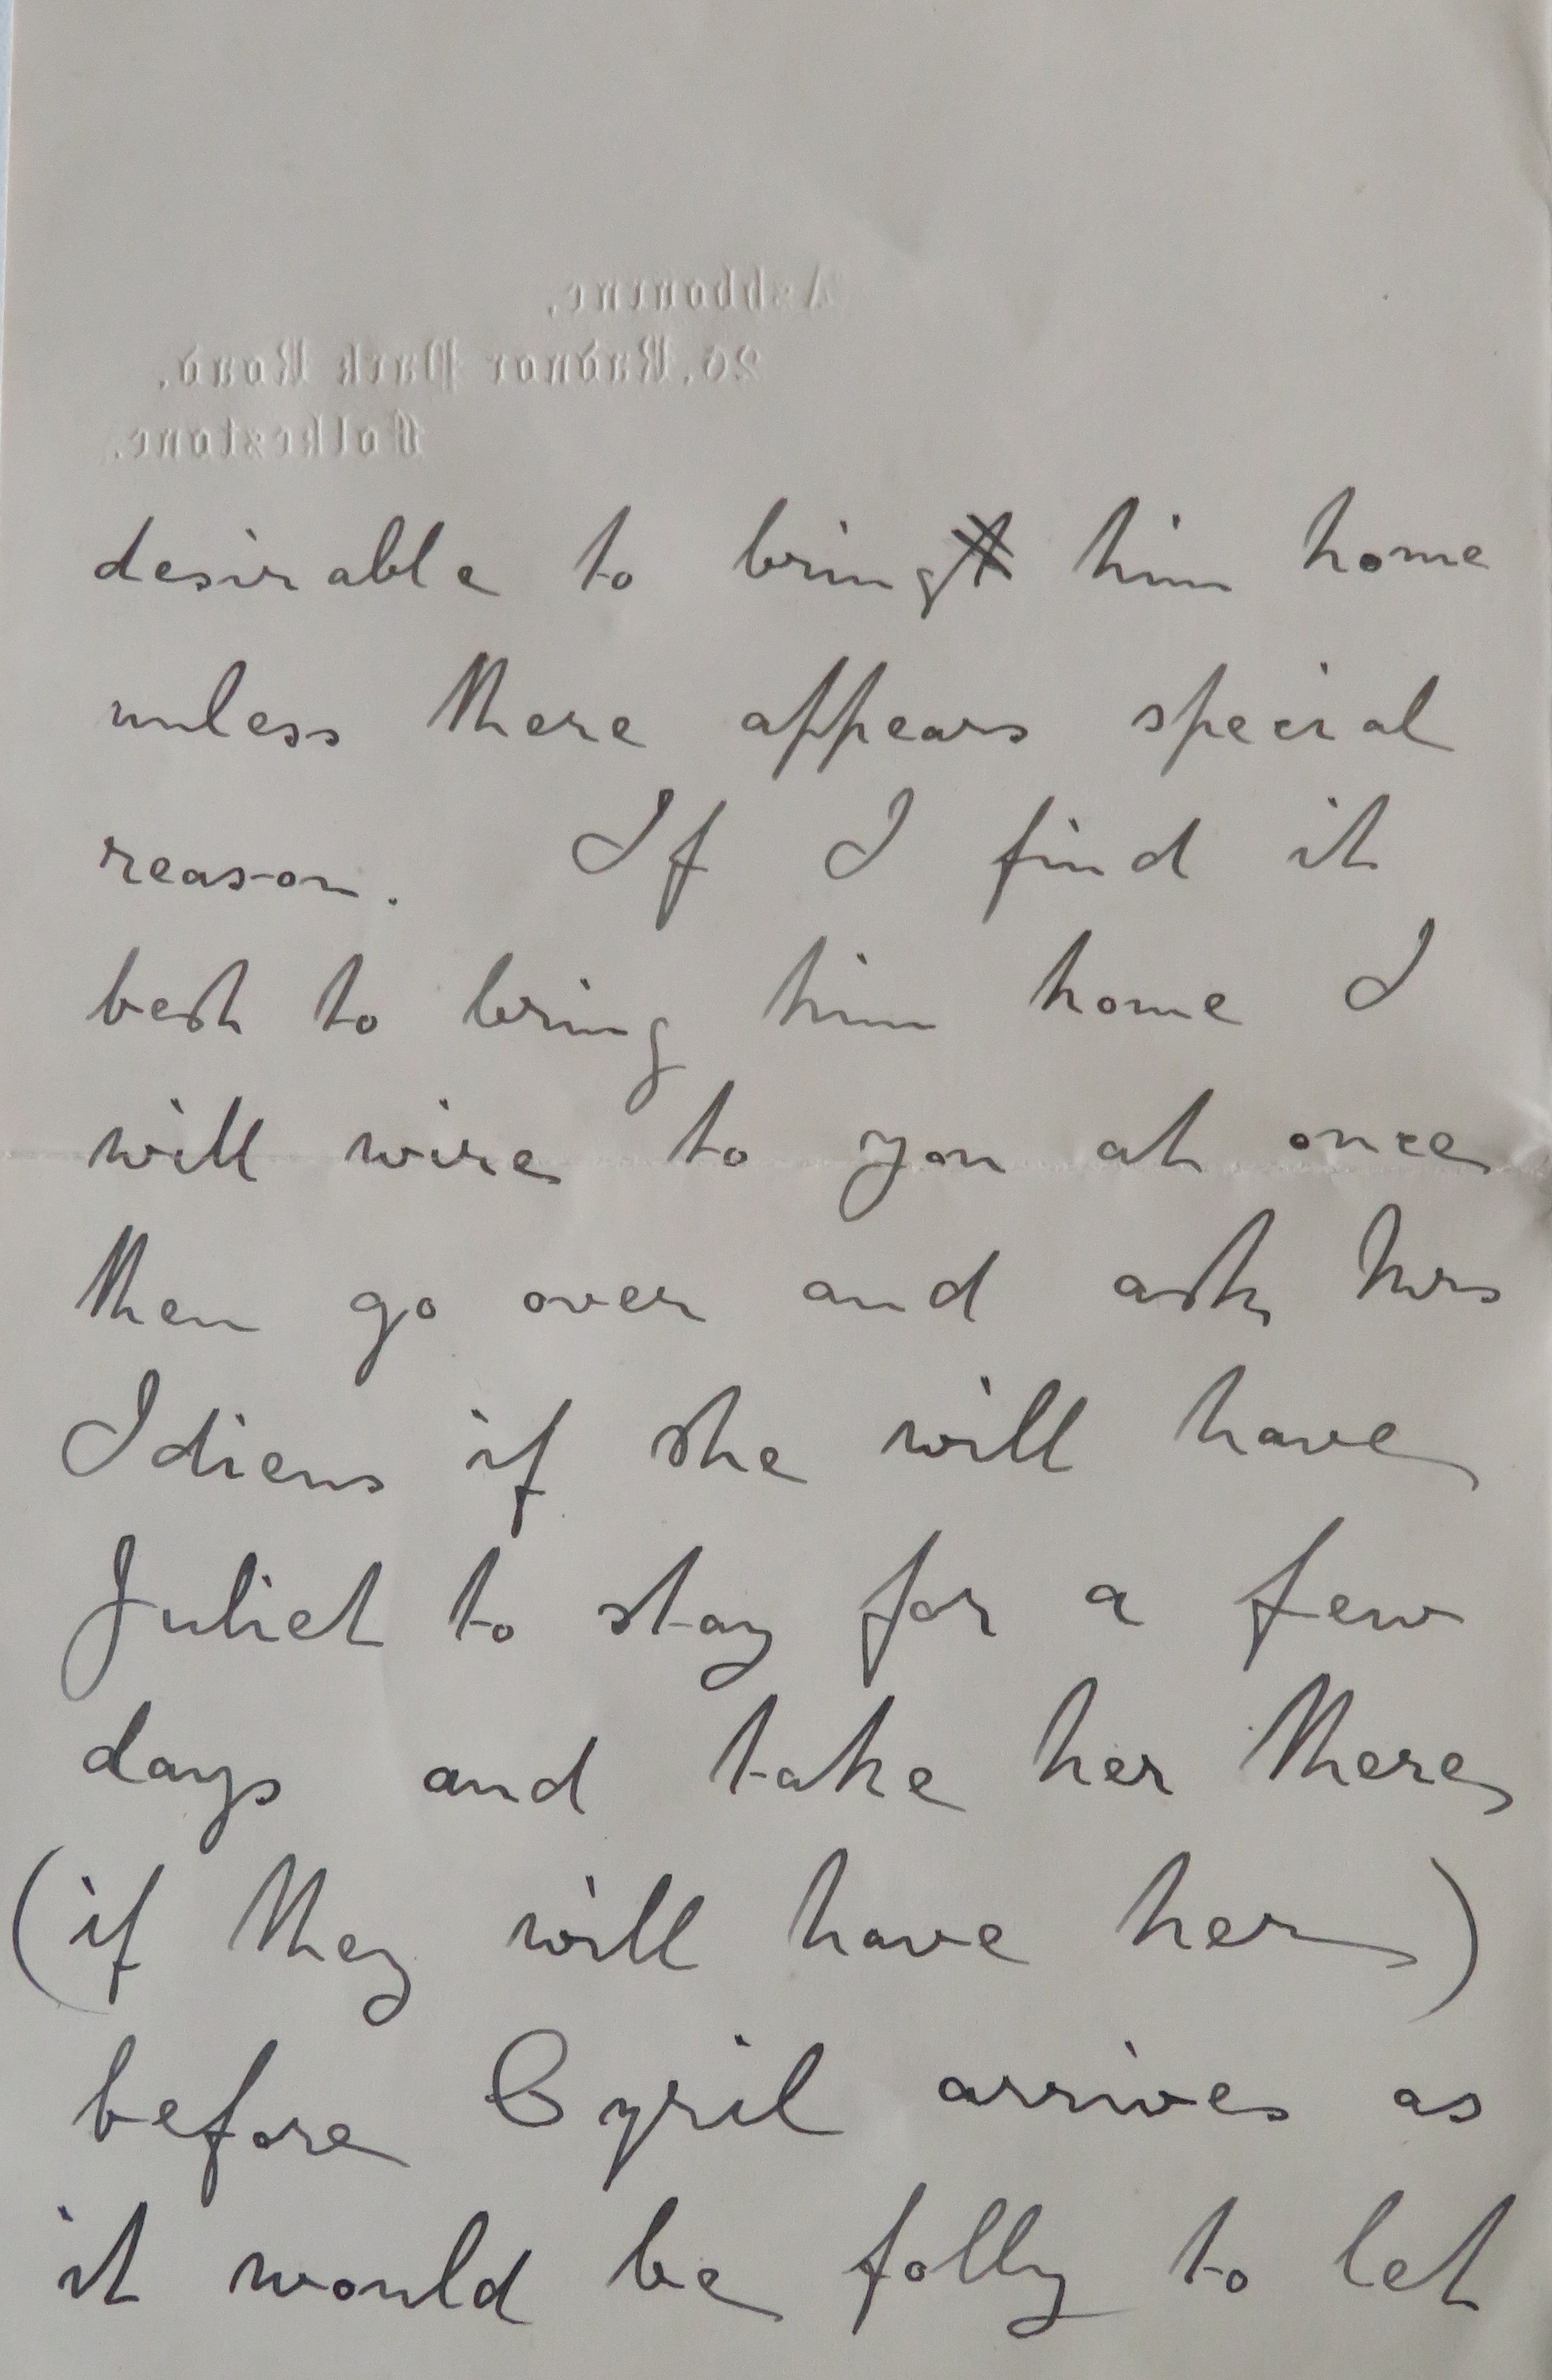 Ashbourne,
26, Radnor Park Road,
Folkestone.
desirable to bring him home
unless there appears special
reason. If I find it
best to bring him home I
will wire to you at once
then go over and ask Mrs
Idiens if she will have
Juliet to stay for a few
days and take her there
(if they will have her)
before Cyril arrives as
it would be folly to let